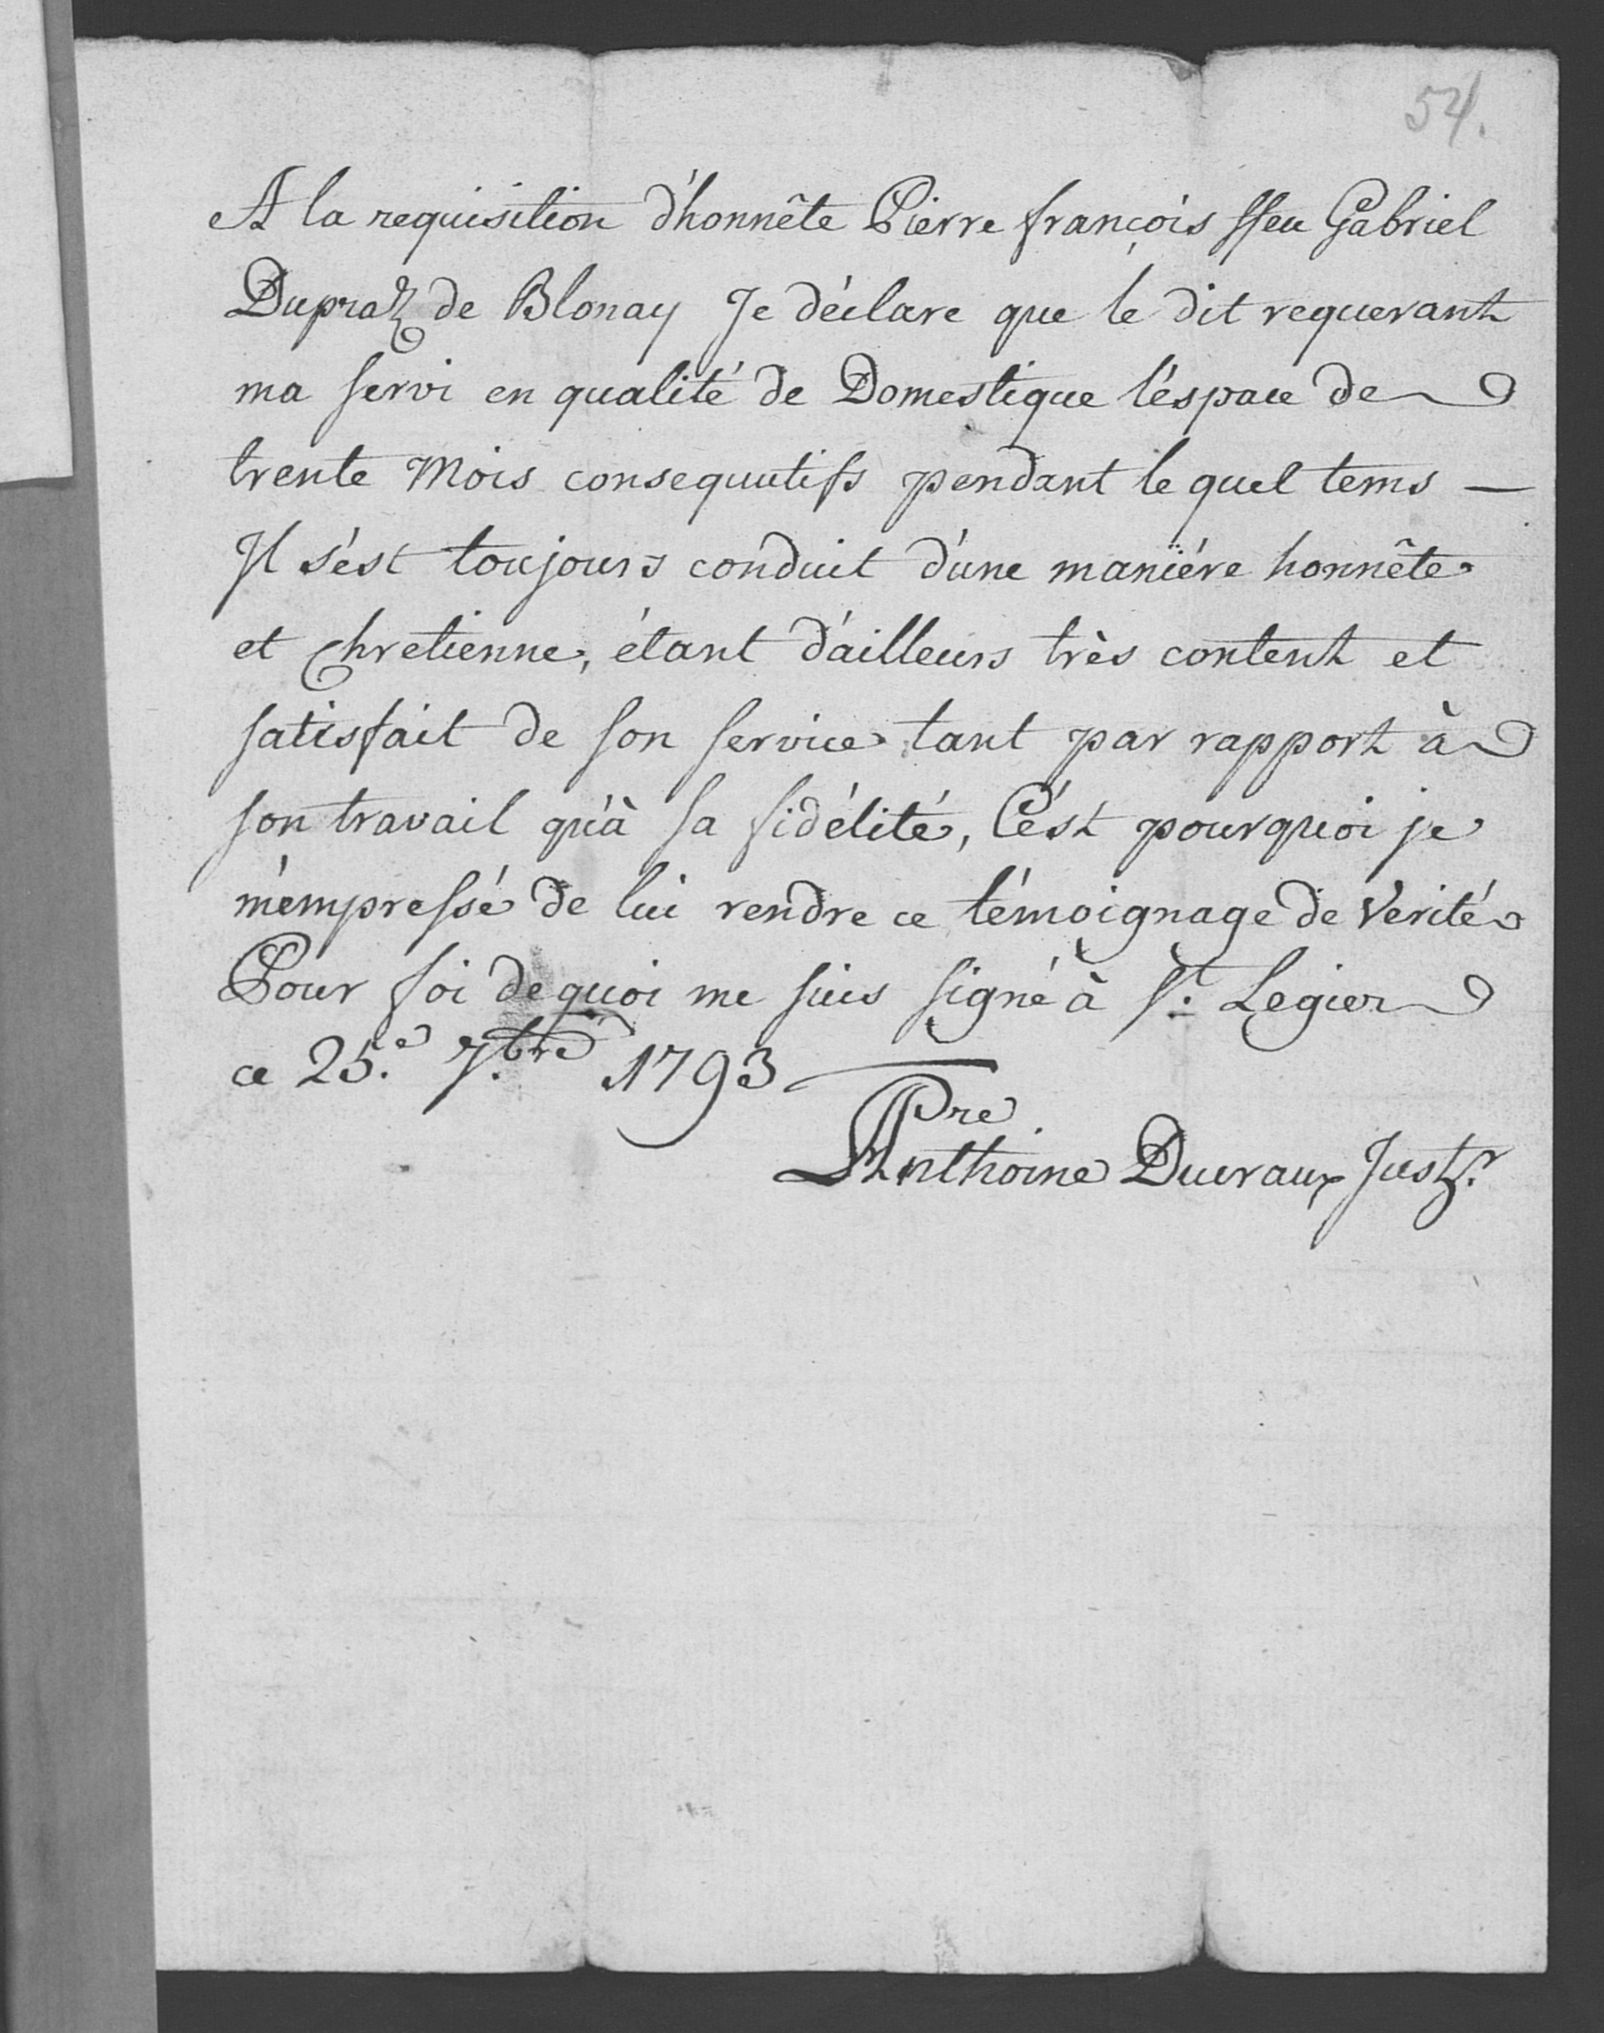 54.
A la requisition d'honnête Pierre françois ffeu Gabriel
Dupraz de Blonay Je déclare que le dit requerant
ma servi en qualité de Domestique l'éspace de
trente Mois consequutifs pendant le quel tems —
Il s'ést toujours conduit d'une maniére honnête
et Chretienne, étant d'ailleurs très content et
satisfait de son service tant par rapport à
son travail qu'à sa fidélité, C'ést pourquoi je
m'empressé de lui rendre ce témoignage de Vérité
Pour foi de quoi me suis signé à St. Legier
ce 25.e 7.bre 1793
Pre
Anthoine Ducraux Justr.